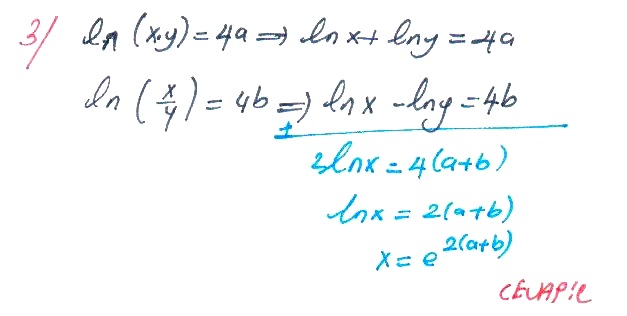 3/ ln (x.y) = 4a ⇒ ln x + ln y = 4a
ln (x/y) = 4b ⇒ ln x - ln y = 4b
+
2lnx = 4(a+b)
lnx = 2(a+b)
x = e^2(a+b)
CEVAP:C